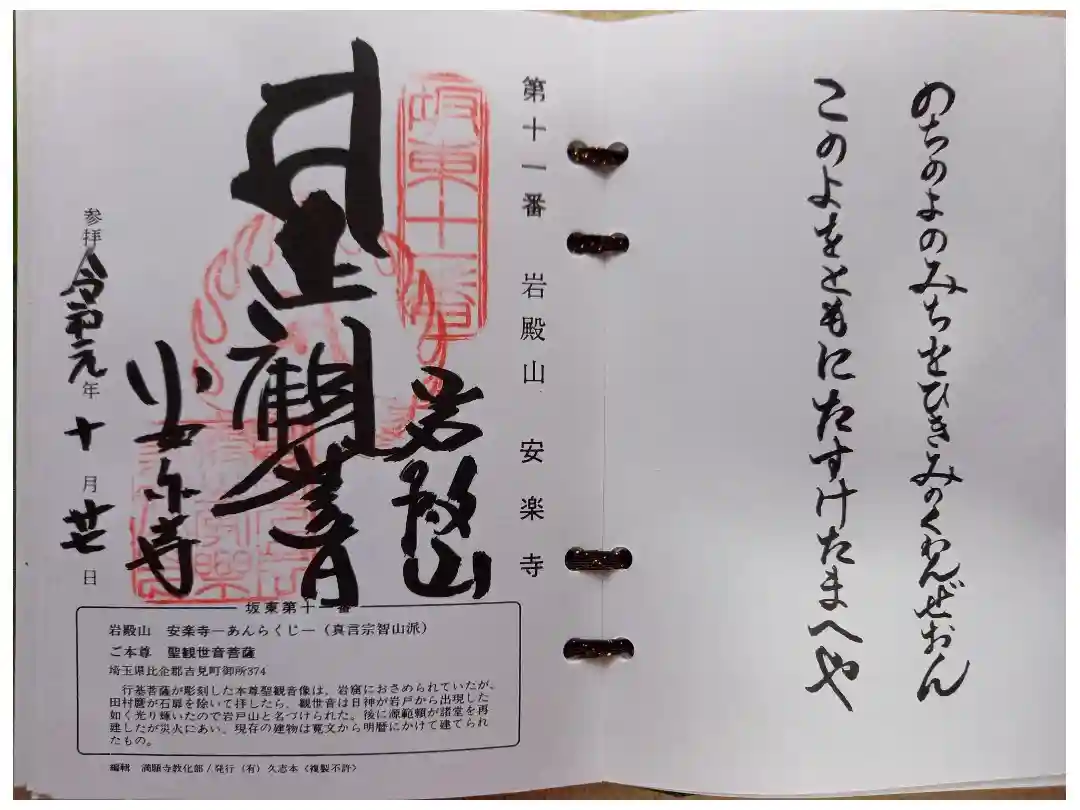 のちのよのみちをひきみのくわんぜおん
このよをともにたすけたまへや
第十一番 岩殿山 安楽寺
坂東十一番
岩殿山
聖観音
安楽寺
参拝 令和元年 十月 廿七日
坂東第十一番
岩殿山 安楽寺―あんらくじ―(真言宗智山派)
ご本尊 聖観世音菩薩
埼玉県比企郡吉見町御所374
行基菩薩が彫刻した本尊聖観音像は、岩窟におさめられていたが、
田村麿が石扉を除いて拝したら、観世音は日神が岩戸から出現した
如く光り輝いたので岩戸山と名づけられた。後に源範頼が諸堂を再
建したが災火にあい、現存の建物は寛文から明暦にかけて建てられ
たもの。
編輯 満願寺教化部/発行(有)久志本〈複製不許〉